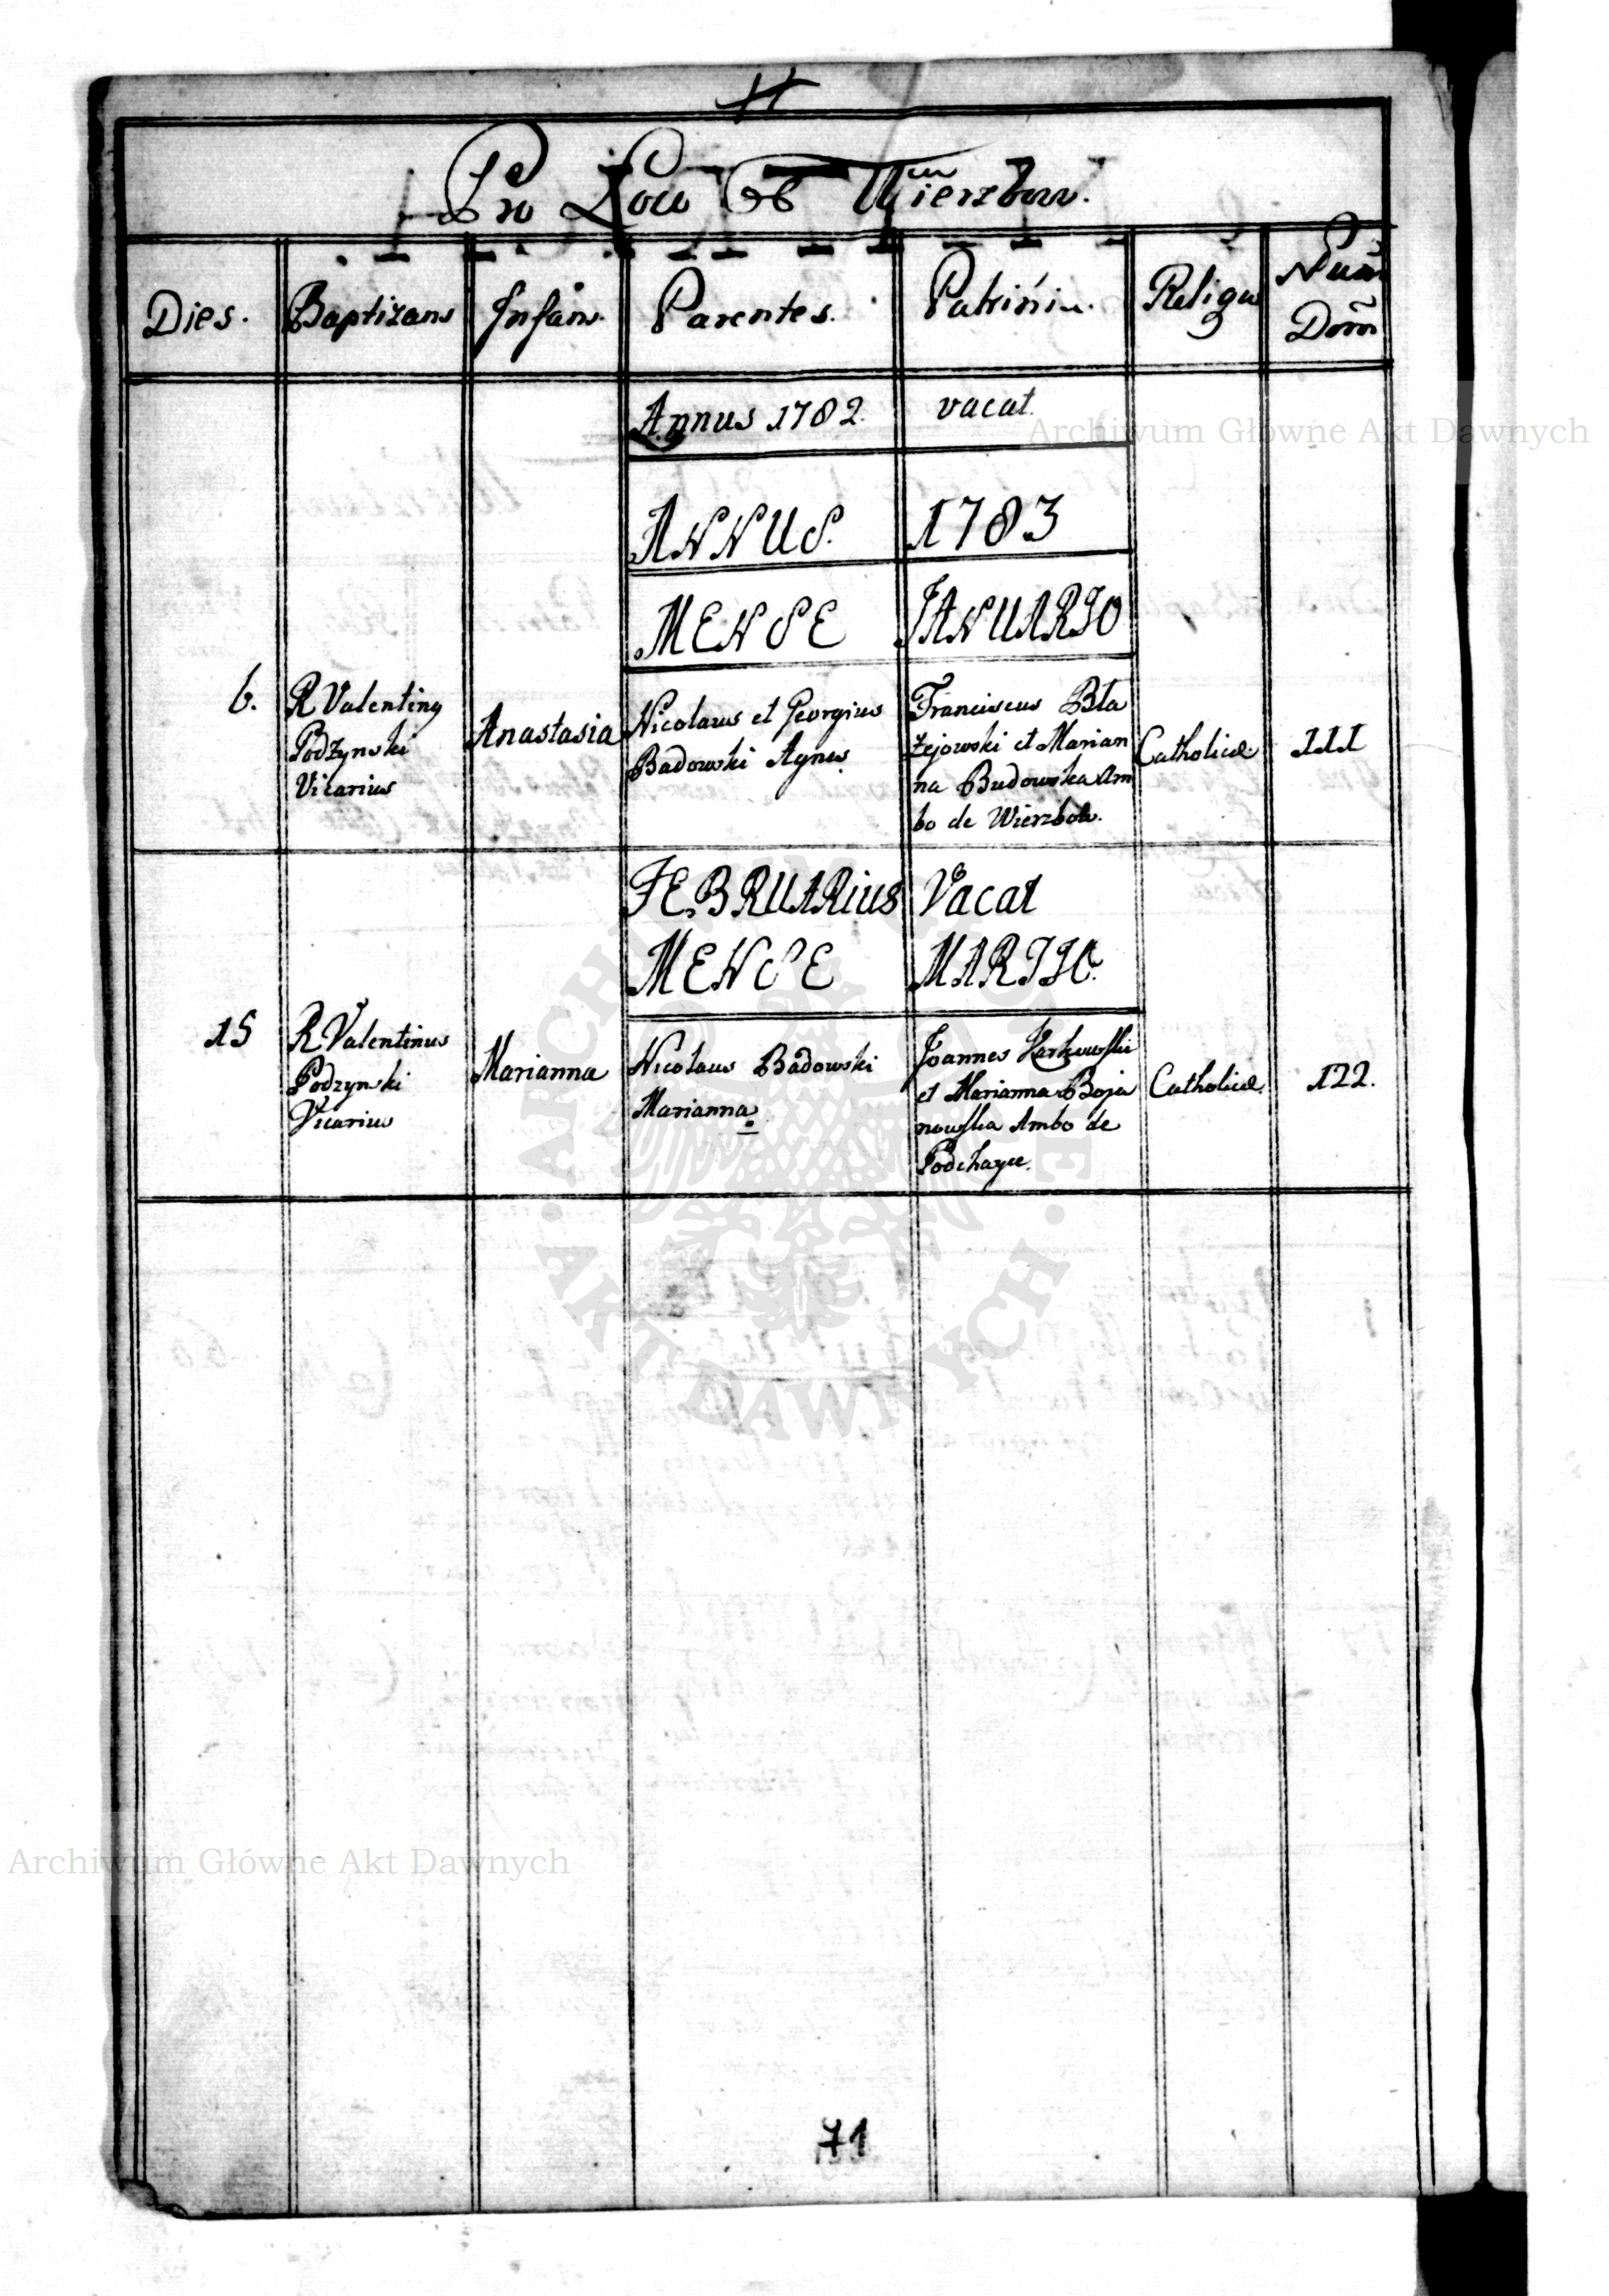 Pro Loco Wierzbow.
Dies. Baptizans Infans. Parentes. Patrini. Religio Num
Dom
Annus 1782. vacat.
Archiwum Główne Akt Dawnych
ANNUS. 1783
MENSE JANUARIO
6. R Valentinq Podzynski Vicarius
Anastasia
Nicolaus et Georgius
Badowski Agnes
Franciscus Bła
żejowski et Marian
na Budowska Am
bo de Wierzbow.
Catholicæ
111
FEBRUARIUS Vacat
MENSE MARTIO.
15 R Valentinus
Podzynski
Vicarius
Marianna
Nicolaus Badowski
Marianna
Joannes
et Marianna Boja
nowska Ambo de
Podhayce.
Catholicæ
122.
ARCHIWUM GŁÓWNE
AKT DAWNYCH
Archiwum Główne Akt Dawnych
71